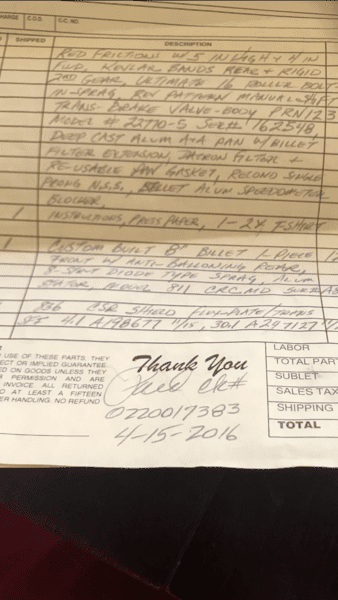 CHARGE C.O.D. C.C. NO.
SHIPPED DESCRIPTION
RED FRICTIONS W/ 5 IN HIGH & 4 IN
FWD, KEVLAR BANDS REAR & RIGID
2ND GEAR, ULTIMATE 16 ROLLER BOLT
IN SPRAG, REV PATTERN MANUAL SHIFT
TRANS-BRAKE VALVE-BODY PRN123
MODEL # 22710-S SER# 162548
DEEP CAST ALUM PAN W/ BILLET
FILTER EXTENSION, FILTER &
RE-USABLE PAN GASKET, SINGLE
PRONG N.S.S., BILLET ALUM SPEEDOMETER
BLOCKER,
1 INSTRUCTIONS, PRESS PAPER, 1-2X T-SHIRT
1 CUSTOM BUILT 8" BILLET 1-PIECE
FRONT W/ ANTI-BALLOONING REAR,
DIODE TYPE SPRAG, ALUM
STATOR, MODEL 811
CSR SHIELD FLEX-PLATE/TRANS
4.1 A198677 11/15, 30.1 A247127
USE OF THESE PARTS. THEY
ECT OR IMPLIED GUARANTEE
ED ON GOODS UNLESS THEY
R PERMISSION AND ARE
INVOICE ALL RETURNED
D AT LEAST A FIFTEEN
ER HANDLING. NO REFUND
Thank You
Paid Ck#
0220017383
4-15-2016
LABOR
TOTAL PAR
SUBLET
SALES TAX
SHIPPING
TOTAL